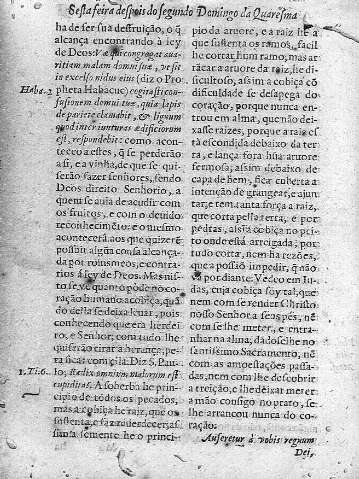 Sesta feira despois do segundo Domingo da Quaresma
ha de ser sua destruição, o q̃
alcança encontrando à ley
de Deos: Væ qui congregat aua-
ritiam malam domui suæ, vt sit
in excelso nidus eius (diz o Pro-
Haba. 2
pheta Habacuc) cogitasti con-
fusionem domui tuæ, quia lapis
de pariete clamabit, & lignum
quod inter iunturas ædificiorum
est, respondebit: como acon-
teceo a esses, q̃ se perderão
a si, e a vinha, de que se qui-
serão fazer senhores, sendo
Deos direito Senhorio, a
quem se auia de acudir com
os fruitos, e com o deuido
reconhecimẽto: e o mesmo
acontecerà aos que quizerẽ
possuir algũa cousa alcança-
da por roins meos, e contra-
rios à ley de Deos. Mas nis-
to se vè quanto pòde no co-
ração humano a cobiça, quã-
do della se deixa leuar, pois
conhecendo que era herdei-
ro, e Senhor; com tudo lhe
quiserão tirar a herança; pe-
ra ficar com ella. Diz S. Pau-
1. Ti. 6.
lo, Radix omnium malorum est
cupiditas. A soberba he prin-
cipio de todos os pecados,
mas a cobiça he raiz, que os
sustenta, e faz reuerdecer: as-
sim a semente he o princi-
pio da aruore, e a raiz he a
que sustenta os ramos, facil
he cortar hum ramo, mas ar-
rãcar e aruore da raiz, he di-
ficultoso, assim a cobiça cõ
dificuldade se desapega do
coração, porque nunca en-
trou em alma, que não dei-
xasse raizes, porque a raiz es-
tà escondida debaixo da ter-
ra, e lança fora hũa aruore
fermosa; assim debaixo de
capa de bem, ficar cuberta a
intenção de grangear, e ajun-
tar; e tem tanta força a raiz,
que corta pella terra, e por
pedras, assi a cobiça no pei-
to onde està arreigada; por
tudo corta, nem ha rezões,
que a possão impedir, q̃ não
và por diante. Vedeo em Iu-
das, cuja cobiça foy tal, que
nem com se render Christo
nosso Senhor a seus pès, nẽ
com se lhe meter, e entra-
nhar na alma, dãdoselhe no
santissimo Sacramento, nẽ
com as amoestações passa-
das, nem com lhe descobrir
a treição, e lhe deixar meter
a mão consigo no prato, se
lhe arrancou nunca do co-
ração:
Auferetur à vobis regnum
Dei,